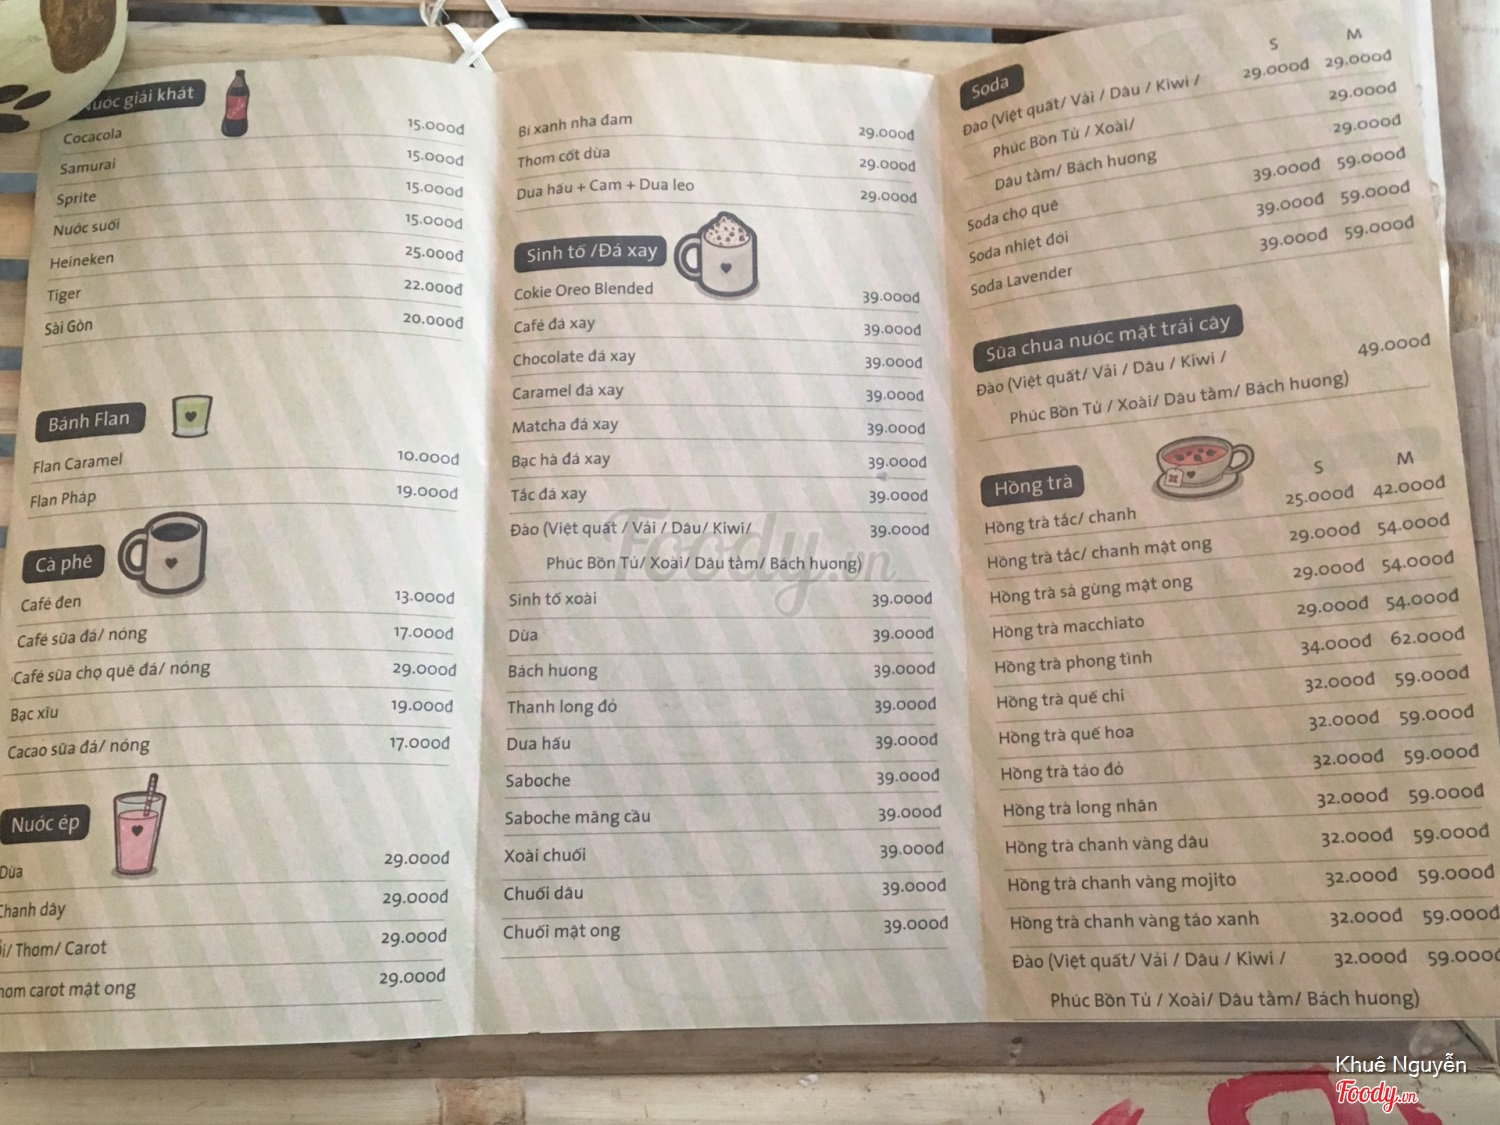 Nước giải khát
Cocacola 15.000đ
Samurai 15.000đ
Sprite 15.000đ
Nước suối 15.000đ
Heineken 25.000đ
Tiger 22.000đ
Sài Gòn 20.000đ
Bánh Flan
Flan Caramel 10.000đ
Flan Pháp 19.000đ
Cà phê
Café đen 13.000đ
Café sữa đá/ nóng 17.000đ
Café sữa chợ quê đá/ nóng 29.000đ
Bạc xỉu 19.000đ
Cacao sữa đá/ nóng 17.000đ
Nước ép
Dừa 29.000đ
Chanh dây 29.000đ
/ Thơm/ Carot 29.000đ
carot mật ong 29.000đ
Bí xanh nha đam 29.000đ
Thơm cốt dừa 29.000đ
Dưa hấu + Cam + Dưa leo 29.000đ
Sinh tố /Đá xay
Cokie Oreo Blended 39.000đ
Café đá xay 39.000đ
Chocolate đá xay 39.000đ
Caramel đá xay 39.000đ
Matcha đá xay 39.000đ
Bạc hà đá xay 39.000đ
Tắc đá xay 39.000đ
Đào (Việt quất / Vải / Dâu/ Kiwi/ 39.000đ
Phúc Bồn Tử/ Xoài/ Dâu tằm/ Bách hương)
Sinh tố xoài 39.000đ
Dừa 39.000đ
Bách hương 39.000đ
Thanh long đỏ 39.000đ
Dưa hấu 39.000đ
Saboche 39.000đ
Saboche mãng cầu 39.000đ
Xoài chuối 39.000đ
Chuối dâu 39.000đ
Chuối mật ong 39.000đ
S M
Soda
Đào (Việt quất/ Vải / Dâu / Kiwi / 29.000đ 29.000đ
Phúc Bồn Tử / Xoài/ 29.000đ
Dâu tằm/ Bách hương 29.000đ
Soda chợ quê 39.000đ 59.000đ
Soda nhiệt đới 39.000đ 59.000đ
Soda Lavender 39.000đ 59.000đ
Sữa chua nước mật trái cây
Đào (Việt quất/ Vải / Dâu / Kiwi / 49.000đ
Phúc Bồn Tử / Xoài/ Dâu tằm/ Bách hương)
Hồng trà S M
Hồng trà tắc/ chanh 25.000đ 42.000đ
Hồng trà tắc/ chanh mật ong 29.000đ 54.000đ
Hồng trà sả gừng mật ong 29.000đ 54.000đ
Hồng trà macchiato 29.000đ 54.000đ
Hồng trà phong tình 34.000đ 62.000đ
Hồng trà quế chi 32.000đ 59.000đ
Hồng trà quế hoa 32.000đ 59.000đ
Hồng trà táo đỏ 32.000đ 59.000đ
Hồng trà long nhãn 32.000đ 59.000đ
Hồng trà chanh vàng dâu 32.000đ 59.000đ
Hồng trà chanh vàng mojito 32.000đ 59.000đ
Hồng trà chanh vàng táo xanh 32.000đ 59.000đ
Đào (Việt quất/ Vải / Dâu / Kiwi / 32.000đ 59.000đ
Phúc Bồn Tử / Xoài/ Dâu tằm/ Bách hương)
Foody.vn
Khuê Nguyễn
Foody.vn